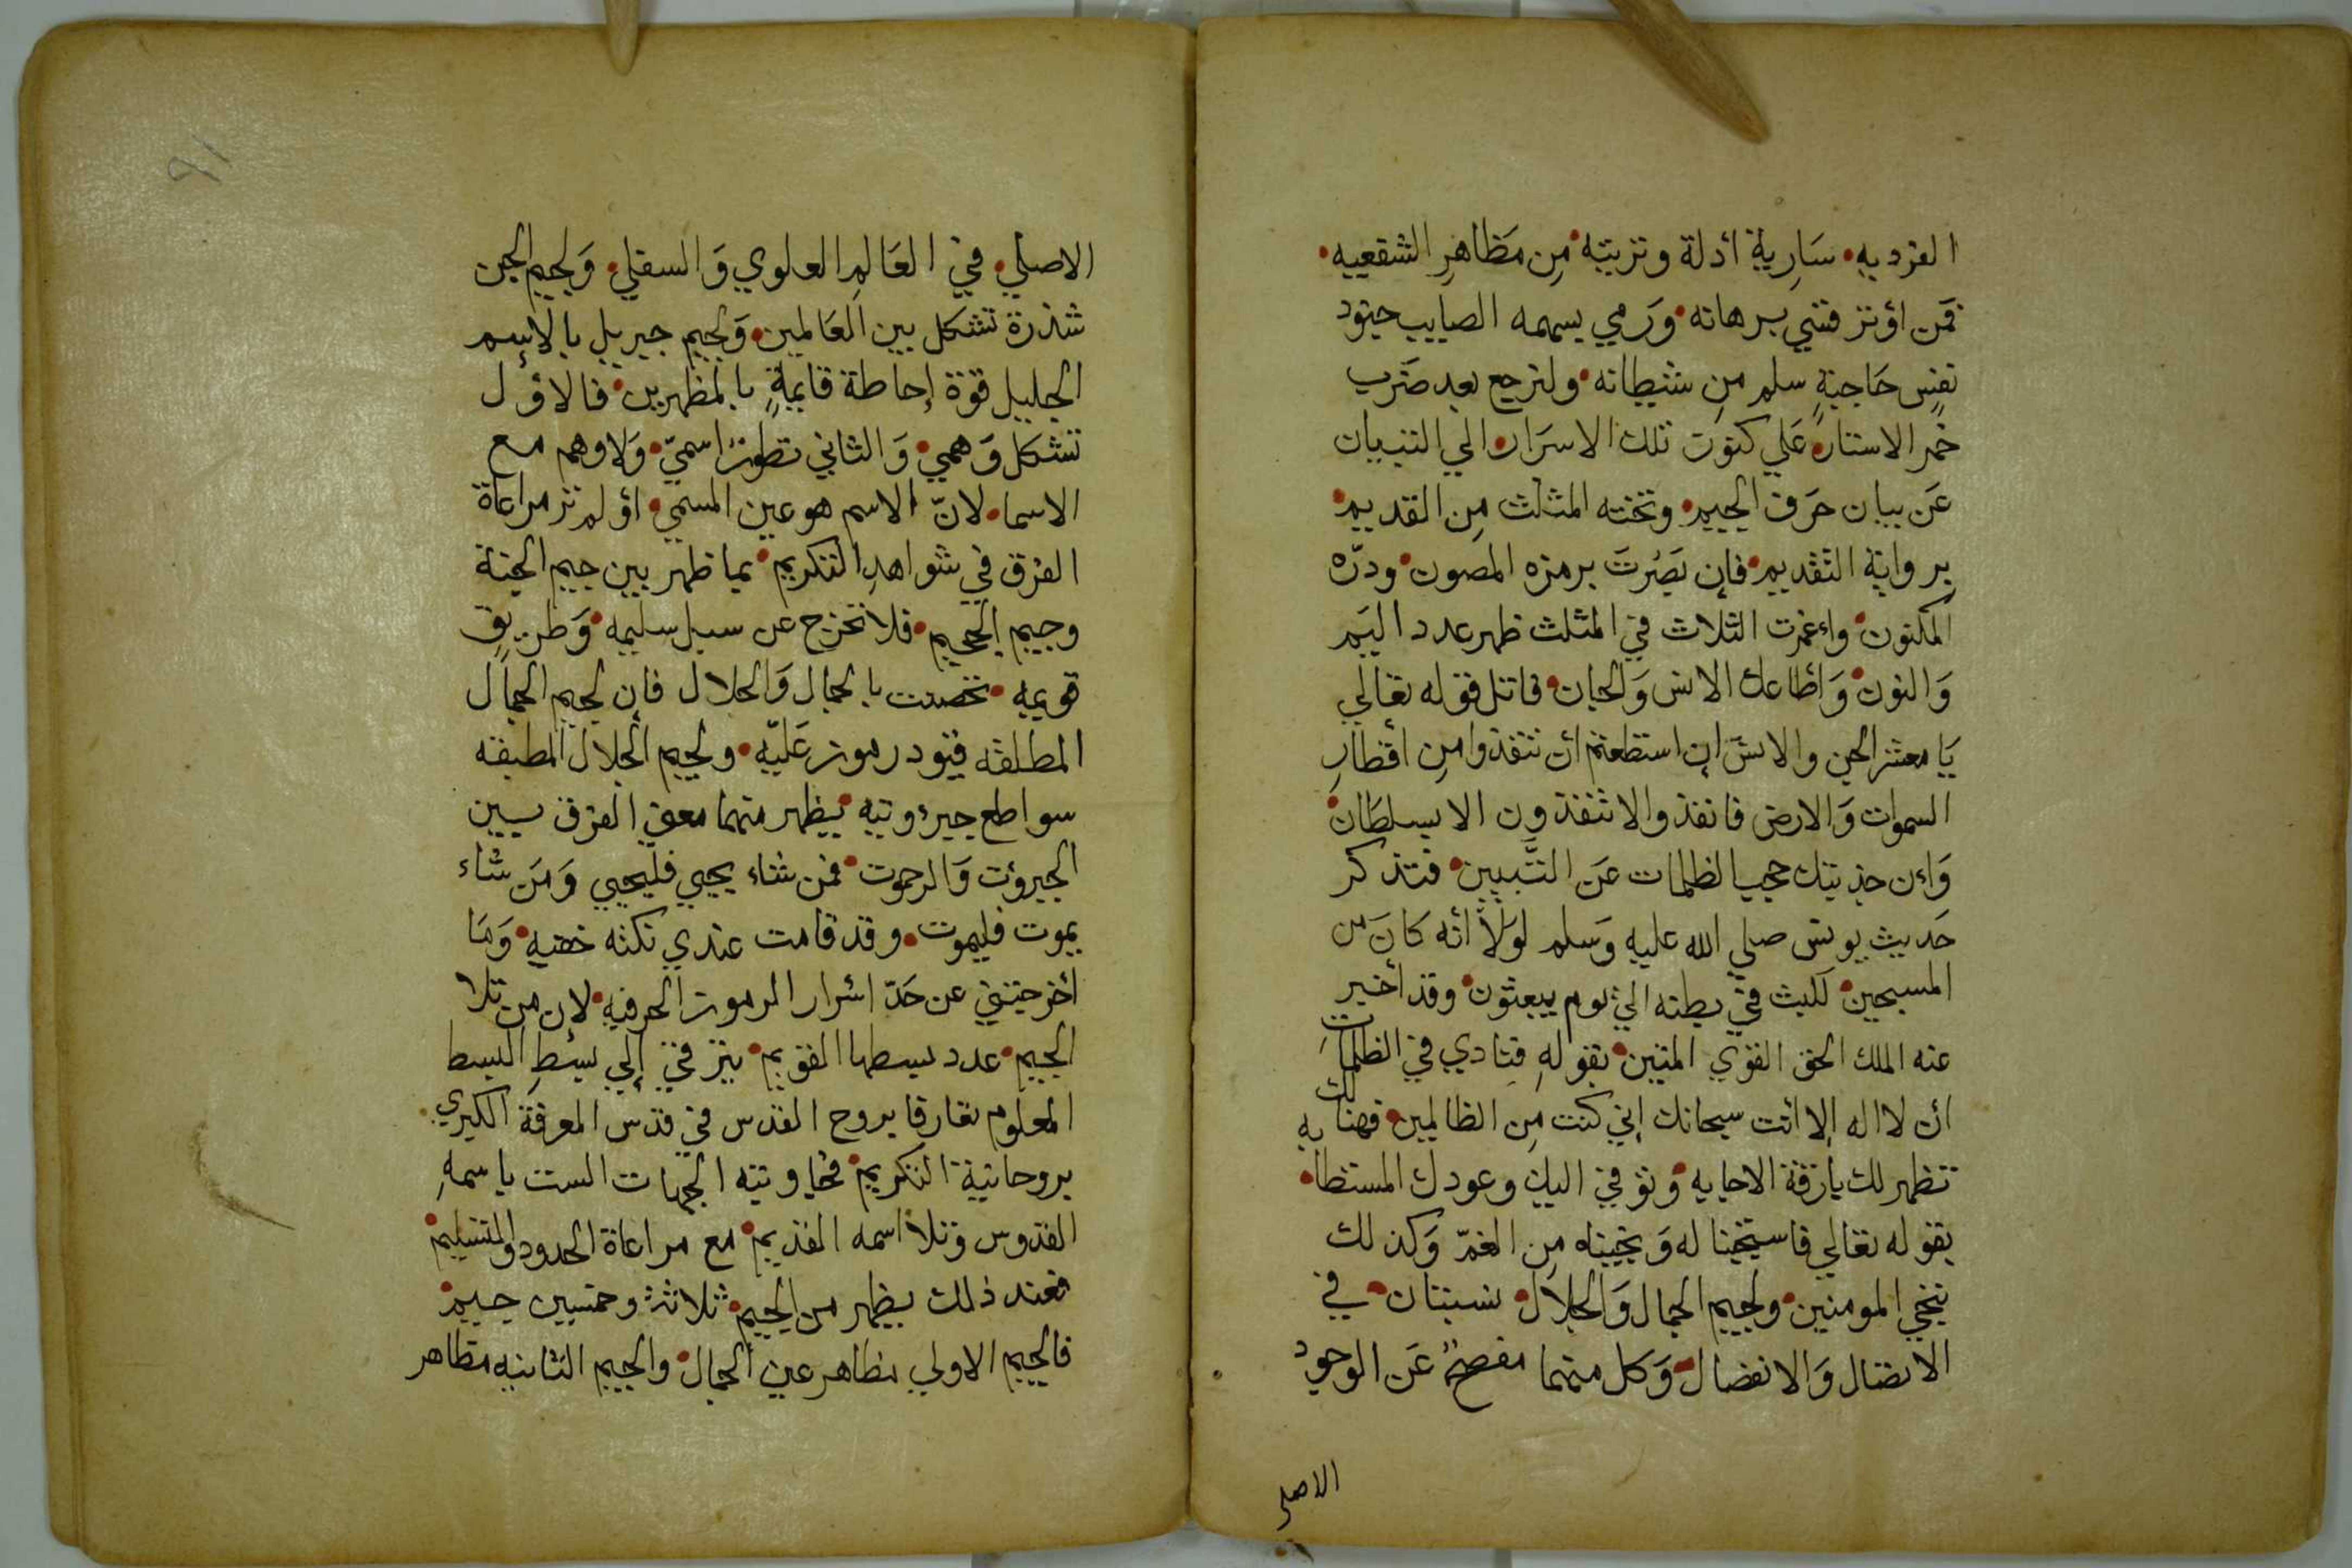 الفرديه سَارية أدلة وتربيته مِن مَظاهرِ الشفعيه
فمَن اوتر قسي برهانه وَرَمي بسهمه الصايب جنود
نفسٍ حَاجبةٍ سلم مِن شيطانه ولنرجع بعد ضَرب
خمر الاستار عَلي كنوز تلك الاسرَار الي التبيان
عَن بيان حَرف الجيم وتحته المثلث مِن القديم
برواية التقديم فإن بَصُرتَ برمزه المصون ودرّه
المكنون واعمرت الثلاث في المثلث ظهر عدد اليَم
وَالنون وَأطاعك الانس وَالجان فاتل قوله تعَالي
يَا معشر الجن والانسَ إن استطعتم أن تنفذوا مِن أقطارِ
السموات وَالارض فانفذوا لا تنفذون الا بسلطان
وَإن جذبتك حجب الظلمات عَن التبيين فتذكر
حَديث يونس صلي الله عليه وَسلم لوَلَا أنه كانَ من
المسبحين للبث في بطنه الي يوم يبعثون وقد أخبر
عنه الملك الحق القوي المتين بقولهِ فنادي في الظلمَاتِ
أن لا اله إلا أنت سبحانك إني كنت مِن الظالمين فهنالك
تظهر لك بارقة الاجابه وَنوفي اليك وعودك المستطابه
بقوله تعَالي فاستجبنا له وَنجيناه مِن الغمّ وَكذلك
ننجي المومنين ولجيم الجمال وَالجلَال نسبتان في
الاتصَال وَالانفصَال وَكل منهما مفصحٌ عَن الوجود
الاصلي
٩١
الاصلي في العَالمِ العلوي وَالسفلي وَلجيم الجن
شذرة تشكل بين العَالمين وَلجيم جبريل بالإسم
الجليل قوة إحاطة قايمةٍ بالمظهرين فالاوّل
تشكل وَهمي وَالثاني تطوّر اسميّ وَلا وهم مع
الاسما لانّ الاسم هو عين المسمي اوَ لم تر مراعاة
الفرق في شواهدِ التكريم بما ظهر بين جيم الجنة
وجيم الجحيم فلا تخرج عن سبيل سليمه وَطريقٍ
قويمه تحصنت بالجمال وَالجلال فإن لجيم الجمال
المطلقه قيود رموز عَليّه ولجيم الجلال المطبقه
سواطع جبروتيه يظهر منهما معني الفرق بين
الجبروت وَالرحموت فمن شاء يحيي فليحيي وَمَن شاء
يموت فليموت وقد قامت عندي نكته خفيه وَمَا
أخرجتني عن حَدّ اسرار الرموز الحرفيه لان من تلا
الجيم عدد بسطها القويم يترقي إلي بسطِ البسط
المعلوم تعَارفا بروح القدس في قدس المعرفة الكبري
بروحانية التكريم فحاوتيه الجهات الست باسمهِ
القدوس وتلا اسمه القديم مع مراعاة الحدود والتسليم
فعند ذلك يظهر من الجيم ثلاثة وخمسين جيم
فالجيم الاولي مظاهر عين الجمال والجيم الثانيه مظاهر